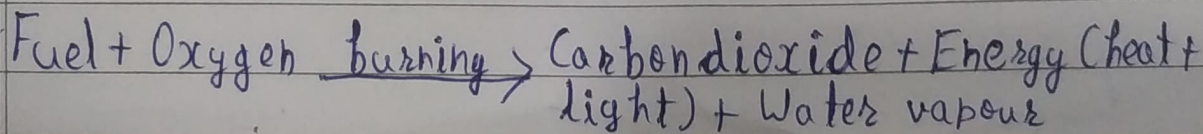 Fuel + Oxygen burning → Carbondioxide + Energy (heat +
light) + Water vapour